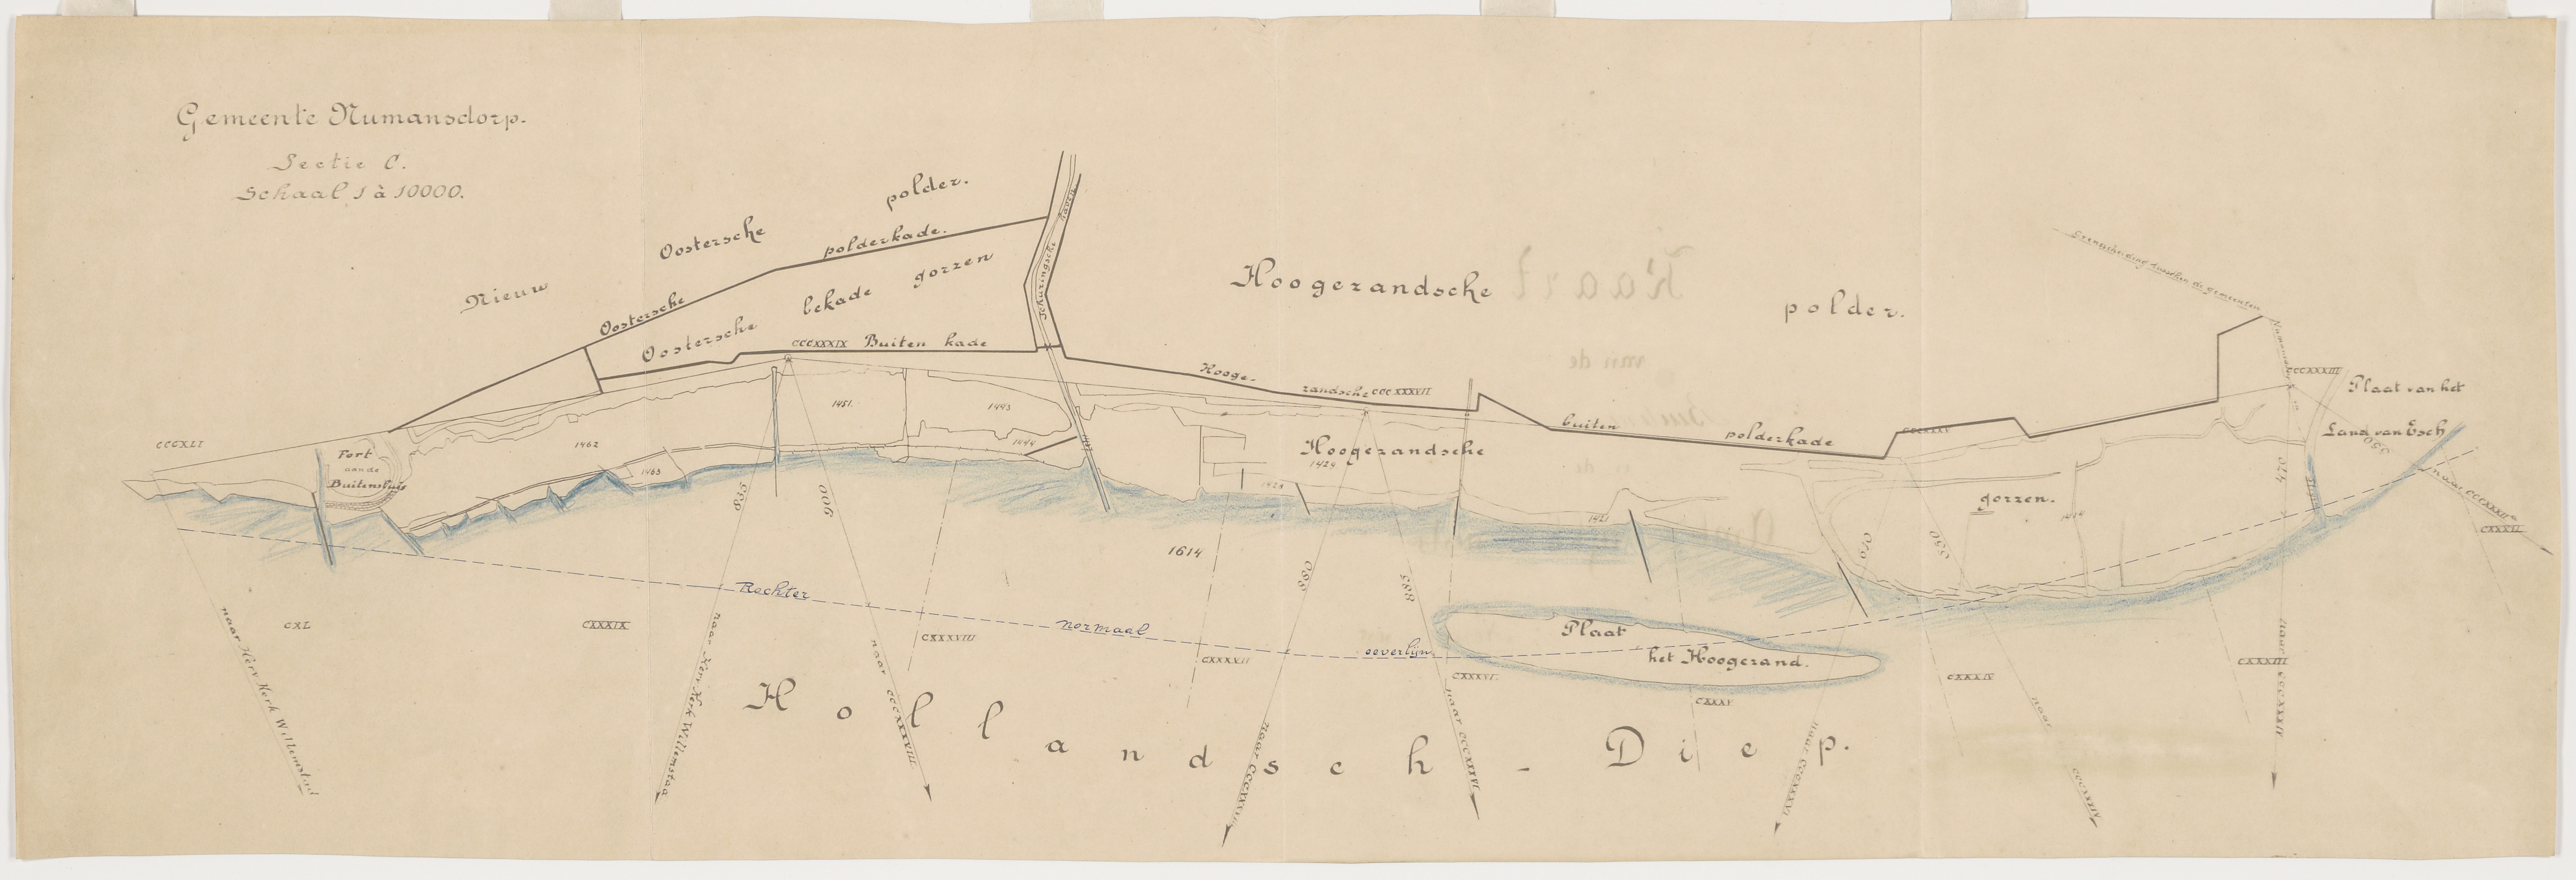 Gemeente Numansdorp.
Sectie C.
Schaal 1 à 10000.
Nieuw Oostersche polder.
Oostersche polderkade.
Oostersche bekade gorzen
CCCXXXIX Buiten kade
Schuringsche haven
Hoogerandsche polder.
Kaart
van de
Grensscheiding tusschen de gemeenten
Hooge-
randsche CCCXXXVII
buiten polderkade
CCCXXXV
CCCXXXIII
Plaat van het
Land van Esch
CCCXLI
Fort
aan de
Buitensluis
1462
1463
1451.
1443
1444
Hoogerandsche
1424
gorzen.
1421
1614
835
900
880
885
970
950
970
950
Rechter normaal oeverlijn.
Plaat
het Hoogerand.
CXL
CXXXIX
CXXXVIII
CXXXVII
CXXXVI.
CXXXV.
CXXXIV
CXXXIII
CXXXII
naar Herv Kerk Willemstad
naar Herv Kerk Willemstad
naar CCCXXXVIII.
naar CCCXXXVIII
naar CCCXXXVI
naar CCCXXXVI
naar CCCXXXIV
naar CCCXXXIV
naar CCCXXXII
Hollandsch-Diep.